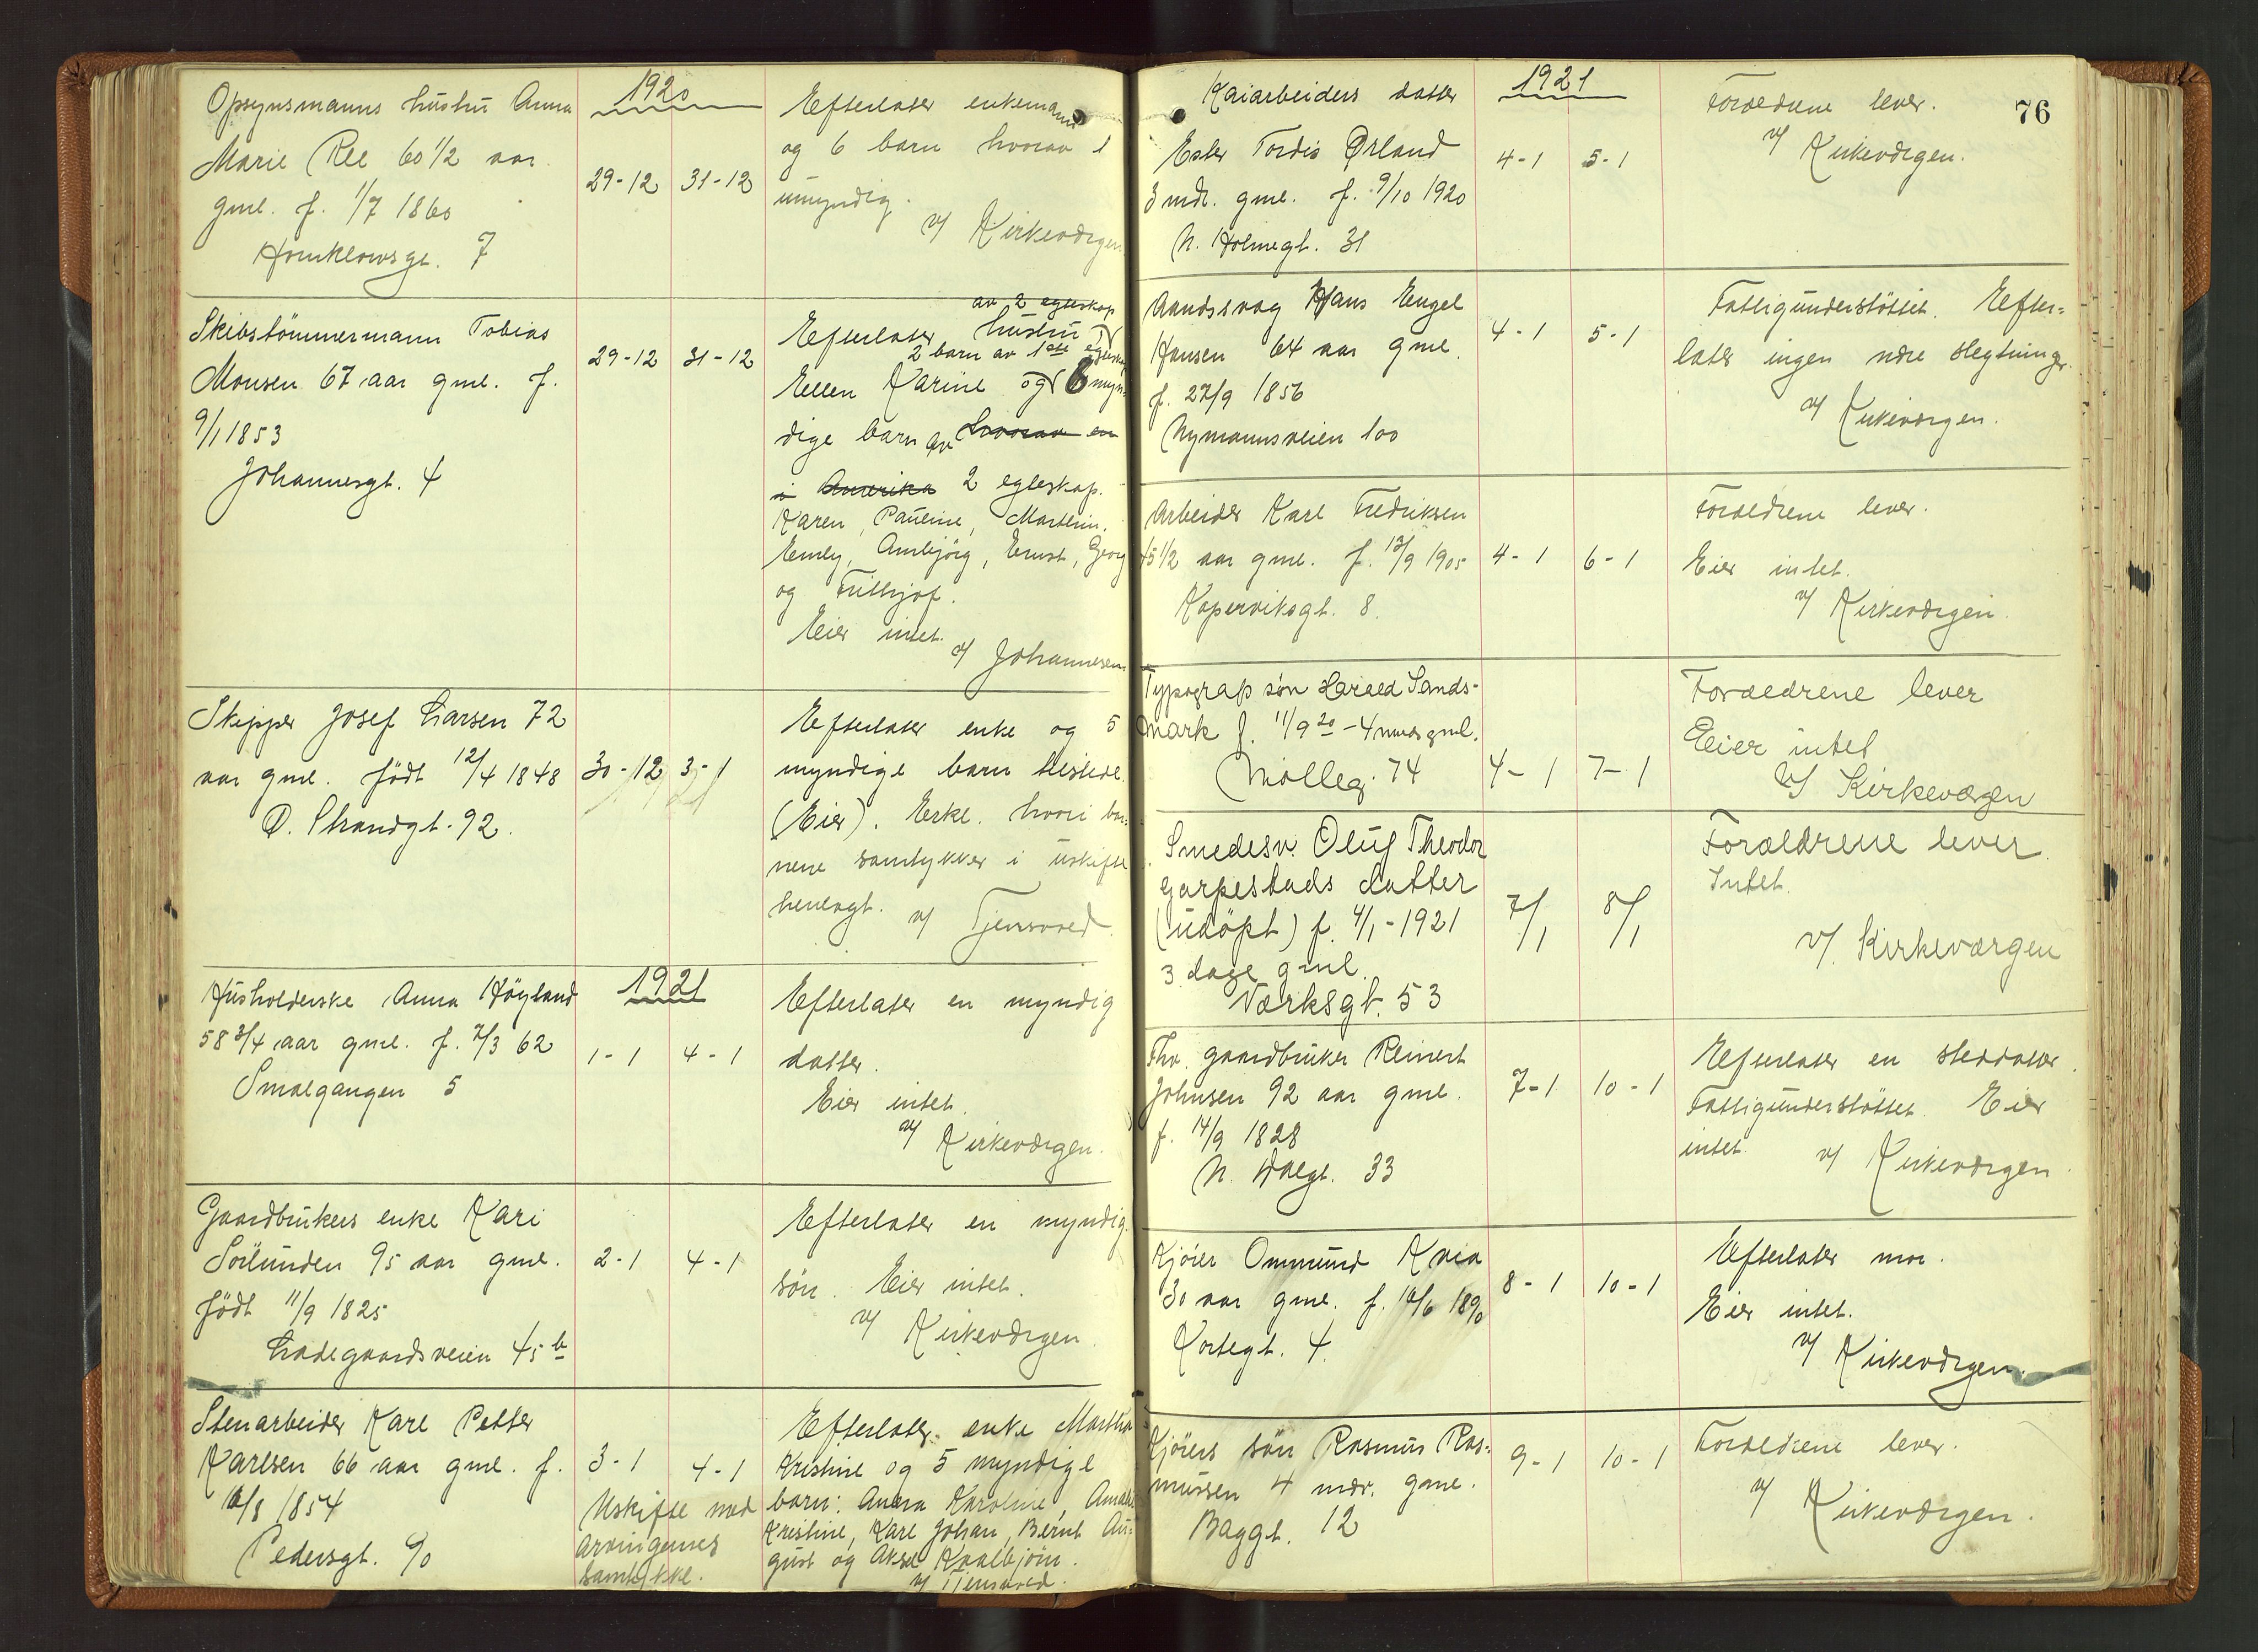 1920
Opsynsmanns hustru Anna
Marie Ree 60 1/2 aar
gml. f. 1/7 1860
7
29-12 31-12
Efterlater enkemann
og 6 barn hvorav 1
umyndig.
v/ Kirkevergen
Skibstömmermann Tobias
Monsen 67 aar gml. f.
9/1 1853
Johannesgt. 4
29-12 31-12
av 2 egteskap
Efterlater hustru
2 barn av 1ste egteskap
Ellen Karine og 6 myn-
dige barn av hvorav en
i Amerika 2 egteskap.
Karen, Pauline, Marthin,
Emly, Ambjörg, Ernst, Georg
og Frithjof.
Eier intet.
v/ Johannesen
Skipper Josef Larsen 72
aar gml. födt 12/4 1848
Ö. Strandgt. 92.
30-12 3-1
Efterlater enke og 5
myndige barn tilstede.
(Eier). Erkl. hvori bar-
nene samtykker i uskifte
henlagt. v/ Tjensvold
1921
Husholderske Anna Höyland
58 3/4 aar gml. f. 7/3 62
Smalgangen 5
1-1 4-1
Efterlater en myndig
datter.
Eier intet.
v/ Kirkevergen.
Gaardbrukers enke Kari
Sörlunden 95 aar gml.
födt 11/9 1825
Ladegaardsveien 45 b
2-1 4-1
Efterlater en myndig
sön. Eier intet.
v/ Kirkevergen.
Stenarbeider Karl Petter
Karlsen 66 aar gml. f.
/8 1854
Pedersgt. 90
3-1 4-1
Uskifte med
arvingernes
samtykke.
Efterlater enke Martha
Kristine og 5 myndige
barn: Anna Karoline, Amalie
Kristine, Karl Johan, Bernt Au-
gust og Aksel Kaalbjörn.
v/ Tjensvold.
76
1921
Kaiarbeiders datter
Ester Tordis Ørland
3 mdr. gml. f. 9/10 1920
N. Holmegt. 31
4-1 5-1
Forældrene lever.
v/ Kirkevergen.
Aandssvag Hans Engel
Hansen 64 aar gml.
f. 27/9 1856
Nymannsveien 100
4-1 5-1
Fattigunderstöttet. Efter-
later ingen nære slegtninger.
v/ Kirkevergen.
Arbeider Karl Fredriksen
15 1/2 aar gml. f. 13/9 1905
Koperviksgt. 8.
4-1 6-1
Forældrene lever.
Eier intet.
v/ Kirkevergen.
Typograf sön Harald Sands-
mark f. 11/9 20 - 4 mnds gml.
Mölleg. 74
4-1 7-1
Forældrene lever
Eier intet
v/ Kirkevergen
Smedesv. Oluf Theodor
Garpestads datter
(udöpt) f. 4/1-1921
3 dage gml.
Værksgt. 53
7/1 8/1
Forældrene lever.
Intet.
v/ Kirkevergen
Fhv. gaardbruker Reinert
Johnsen 92 aar gml.
f. 14/9 1828
N. Dalgt. 33
7-1 10-1
Efterlater en steddatter.
Fattigunderstöttet. Eier
intet. v/ Kirkevergen.
Kjörer Ommund Kvia
30 aar gml. f. 16/6 1890
Kortegt. 4.
8-1 10-1
Efterlater mor.
Eier intet.
v/ Kirkevergen.
Kjörers sön Rasmus Ras-
mussen 4 mdr. gml.
Baggt. 12
9-1 10-1
Forældrene lever.
v/ Kirkevergen.